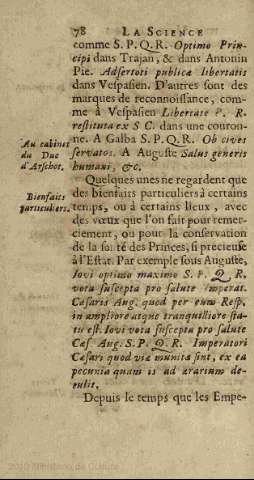 78 LA SCIENCE
comme S. P. Q. R. Optimo Prin-
cipi dans Trajan, & dans Antonin
Pie. Adsertori publicæ libertatis
dans Vespasien. D'autres sont des
marques de reconnoissance, com-
me à Vespasien Libertate P. R.
restituta ex S C. dans une couron-
ne. A Galba S. P. Q. R. Ob cives
servatos. A Auguste Salus generis
humani, &c.
Au cabinet
du Duc
d'Arschot.
Quelques unes ne regardent que
des bienfaits particuliers à certains
temps, ou à certains lieux, avec
des vœux que l'on fait pour remer-
ciement, ou pour la conservation
de la santé des Princes, si precieuse
à l'Estat. Par exemple sous Auguste,
Bienfaits
particuliers.
Iovi optimo maximo S. P. Q. R.
vota suscepta pro salute Imperat.
Cæsaris Aug. quod per eum Resp.
in ampliore atque tranquilliore sta-
tu est. Iovi vota suscepta pro salute
Cæs Aug. S. P. Q. R. Imperatori
Cæsari quod viæ munitæ sint, ex ea
pecunia quam is ad ararium de-
tulit.
Depuis le temps que les Empe-
2010 Ministerio de Cultura